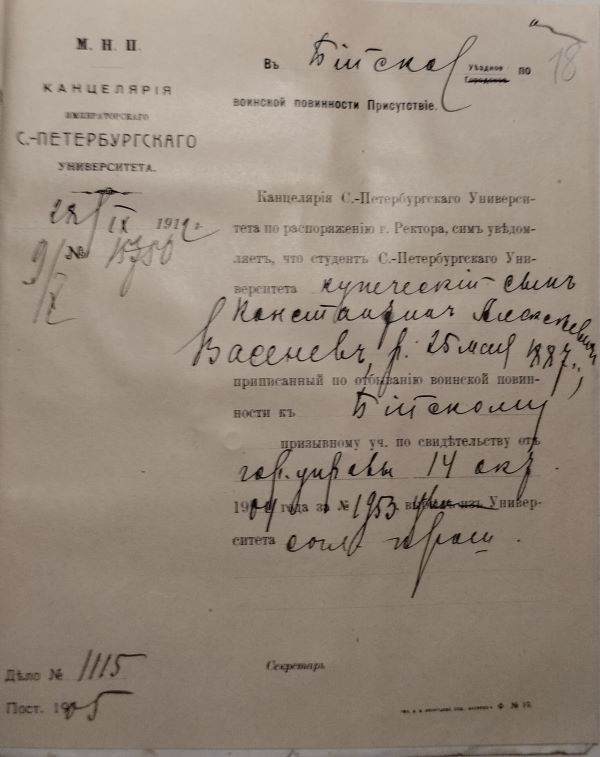 М. Н. П.
КАНЦЕЛЯРІЯ
ИМПЕРАТОРСКАГО
С.-ПЕТЕРБУРГСКАГО
УНИВЕРСИТЕТА.
28/IX 1912 г.
№ 15750
9/X
18
Въ Бійское Уѣздное Городское по
воинской повинности Присутствіе.
Канцелярія С.-Петербургскаго Универси-
тета по распоряженію г. Ректора, симъ увѣдом-
ляетъ, что студентъ С.-Петербургскаго Уни-
верситета купеческій сынъ
Константинъ Алексѣевичъ
Васеневъ, р. 25 мая 1887 г.,
приписанный по отбыванію воинской повин-
ности къ Бійскому
призывному уч. по свидѣтельству отъ
гор. управы 14 окт.
1904 года за № 1953, изъ Универ-
ситета согл. прош.
Секретарь
Дѣло № 1115
Пост. 1905
Ф. № 19.